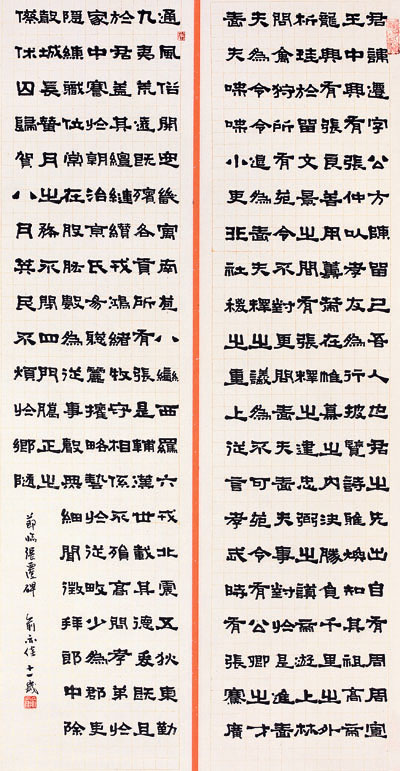 君諱遷字公方陳留己吾人也君之先出自有周周宣
王中興有張仲以孝友為行披覽詩雅煥知其祖高帝
龍興有張良善用籌策在帷幕之內決勝負千里之外
析珪於留文景之間有張釋之建忠弼之謨帝遊上林
問禽狩所有苑令不對更問嗇夫嗇夫事對於是進嗇
夫為令令退為嗇夫釋之議為不可苑令有公卿之才
嗇夫喋喋小吏非社稷之重上從言孝武時有張騫廣
通風俗開定畿寓南苞八蠻西羈六戎北震五狄東勤
九夷荒遠既殯各貢所有張是輔漢世載其德爰既且
於君蓋其繵縺纘戎鴻緒牧守相係不殞高問孝弟於
家中謇於朝治京氏易聰麗權略藝於從畋少為郡吏
隱練職位常在股肱數為從事聲無細聞徵拜郎中除
穀城長蠶月之務不閉四門臘正之
傺休囚歸賀八月筭民不煩於鄉隨
節臨張遷碑 十一歲